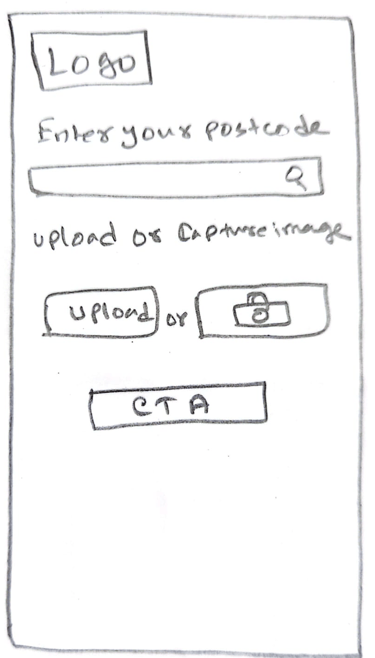 Logo
Enter your postcode
upload or Capture image
upload or
CTA